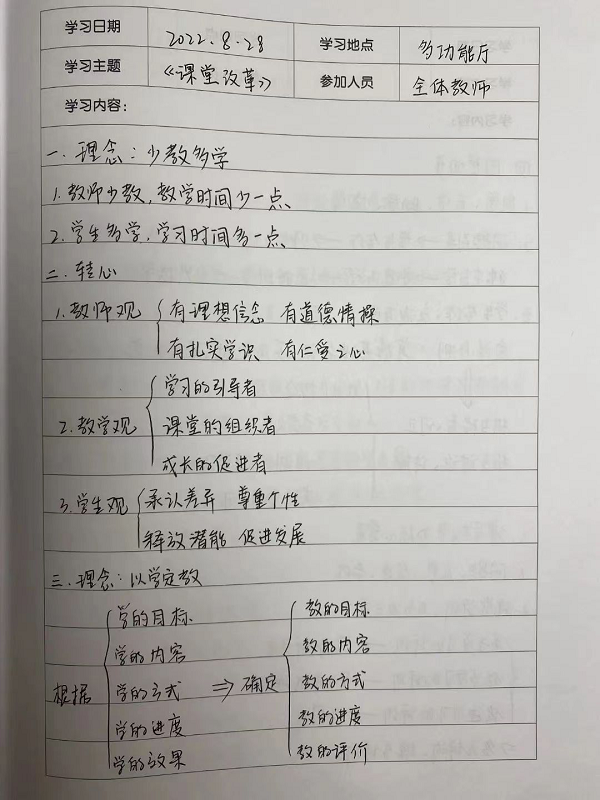 学习日期 2022.8.28 学习地点 多功能厅
学习主题 《课堂改革》 参加人员 全体教师
学习内容：
一.理念：少教多学
1.教师少教,教学时间少一点、
2.学生多学,学习时间多一点、
二.转心
1.教师观 有理想信念 有道德情操
有扎实学识 有仁爱之心
2.教学观 学习的引导者
课堂的组织者
成长的促进者
3.学生观 承认差异 尊重个性
释放潜能 促进发展
三.理念：以学定教
根据 学的目标 学的内容 学的方式 学的进度 学的效果 ⇒ 确定 教的目标 教的内容 教的方式 教的进度 教的评价